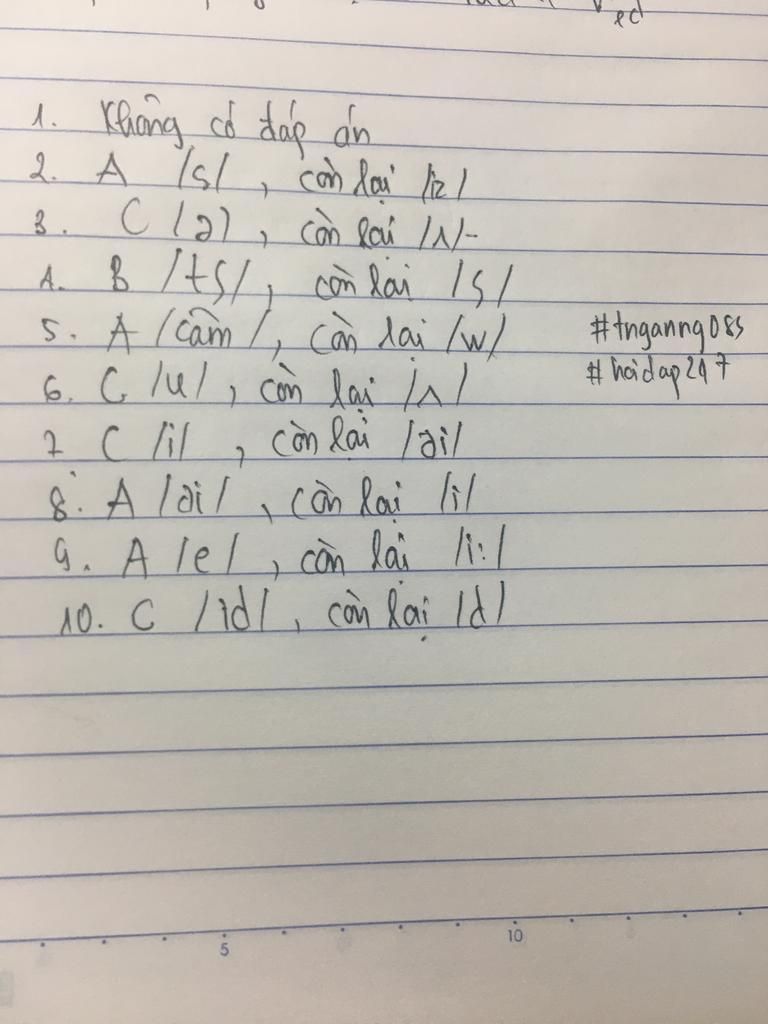 Ved
1. Không có đáp án
2. A /s/, còn lại /iz/
3. C /ə/, còn lại /ʌ/-
4. B /tʃ/, còn lại /ʃ/
5. A /câm/, còn lại /w/
#tnganng085
6. C /u/, còn lại /ʌ/
#hoidap247
7 C /i/, còn lại /ai/
8. A /ai/, còn lại /i/
9. A /e/, còn lại /i:/
10. C /id/, còn lại /d/
5 10